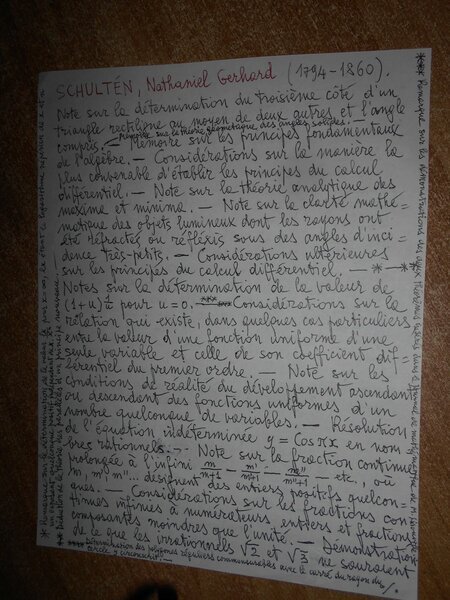 SCHULTÉN, Nathaniel Gerhard (1794-1860).
Note sur la détermination du troisième côté d'un
triangle rectiligne au moyen de deux autres et l'angle
compris. Mémoire sur la théorie géométrique des angles solides.
— Mémoire sur les principes fondamentaux
de l'algèbre. — Considérations sur la manière la
plus convenable d'établir les principes du calcul
différentiel. — Note sur la théorie analytique des
maxima et minima. — Note sur la clarté mathé=
matique des objets lumineux dont les rayons ont
été réfractés ou réfléxis sous des angles d'inci=
dence très-petits. — Considérations ultérieures
sur les principes du calcul différentiel. — * — *
Notes sur la détermination de la valeur de
(1+u)^1/u pour u=0. — Considérations sur la
rélation qui existe, dans quelques cas particuliers
entre la valeur d'une fonction uniforme d'une
seule variable et celle de son coefficient dif=
férentiel du premier ordre. — Note sur les
conditions de réalité du développement ascendant
ou descendant des fonctions uniformes d'un
nombre quelconque de variables. — Résolution
de l'équation indéterminée y = cos πx en nom=
bres rationnels. — Note sur la fraction continue
prolongée à l'infini m/m+1 — m'/m'+1 — m''/m''+1 — etc., où
m, m', m''... désignent des entiers positifs quelcon=
ques. — Considérations sur les fractions con=
tinues infinies à numérateurs entiers et fractions
composantes moindres que l'unité. — Démonstration
de ce que les irrationnelles √2 et √3 ne sauroient
Détermination des polygones réguliers commensurables avec le carré du rayon du
cercle y circonscrit. —